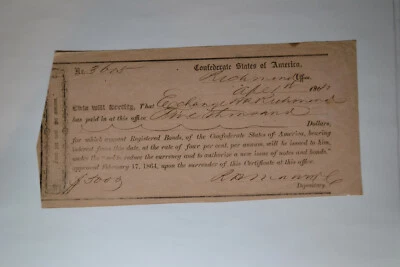 Confederate States of America,
No. 3605
Richmond Office,
April
This will Certify, That Exchange Bk Richmond
has paid in at this office, Five thousand
Dollars,
for which amount Registered Bonds, of the Confederate States of America, bearing
interest from this date, at the rate of four per cent. per annum, will be issued to him,
under the "act to reduce the currency and to authorize a new issue of notes and bonds,"
approved February 17, 1864, upon the surrender of this Certificate at this office.
$5000
Depositary.